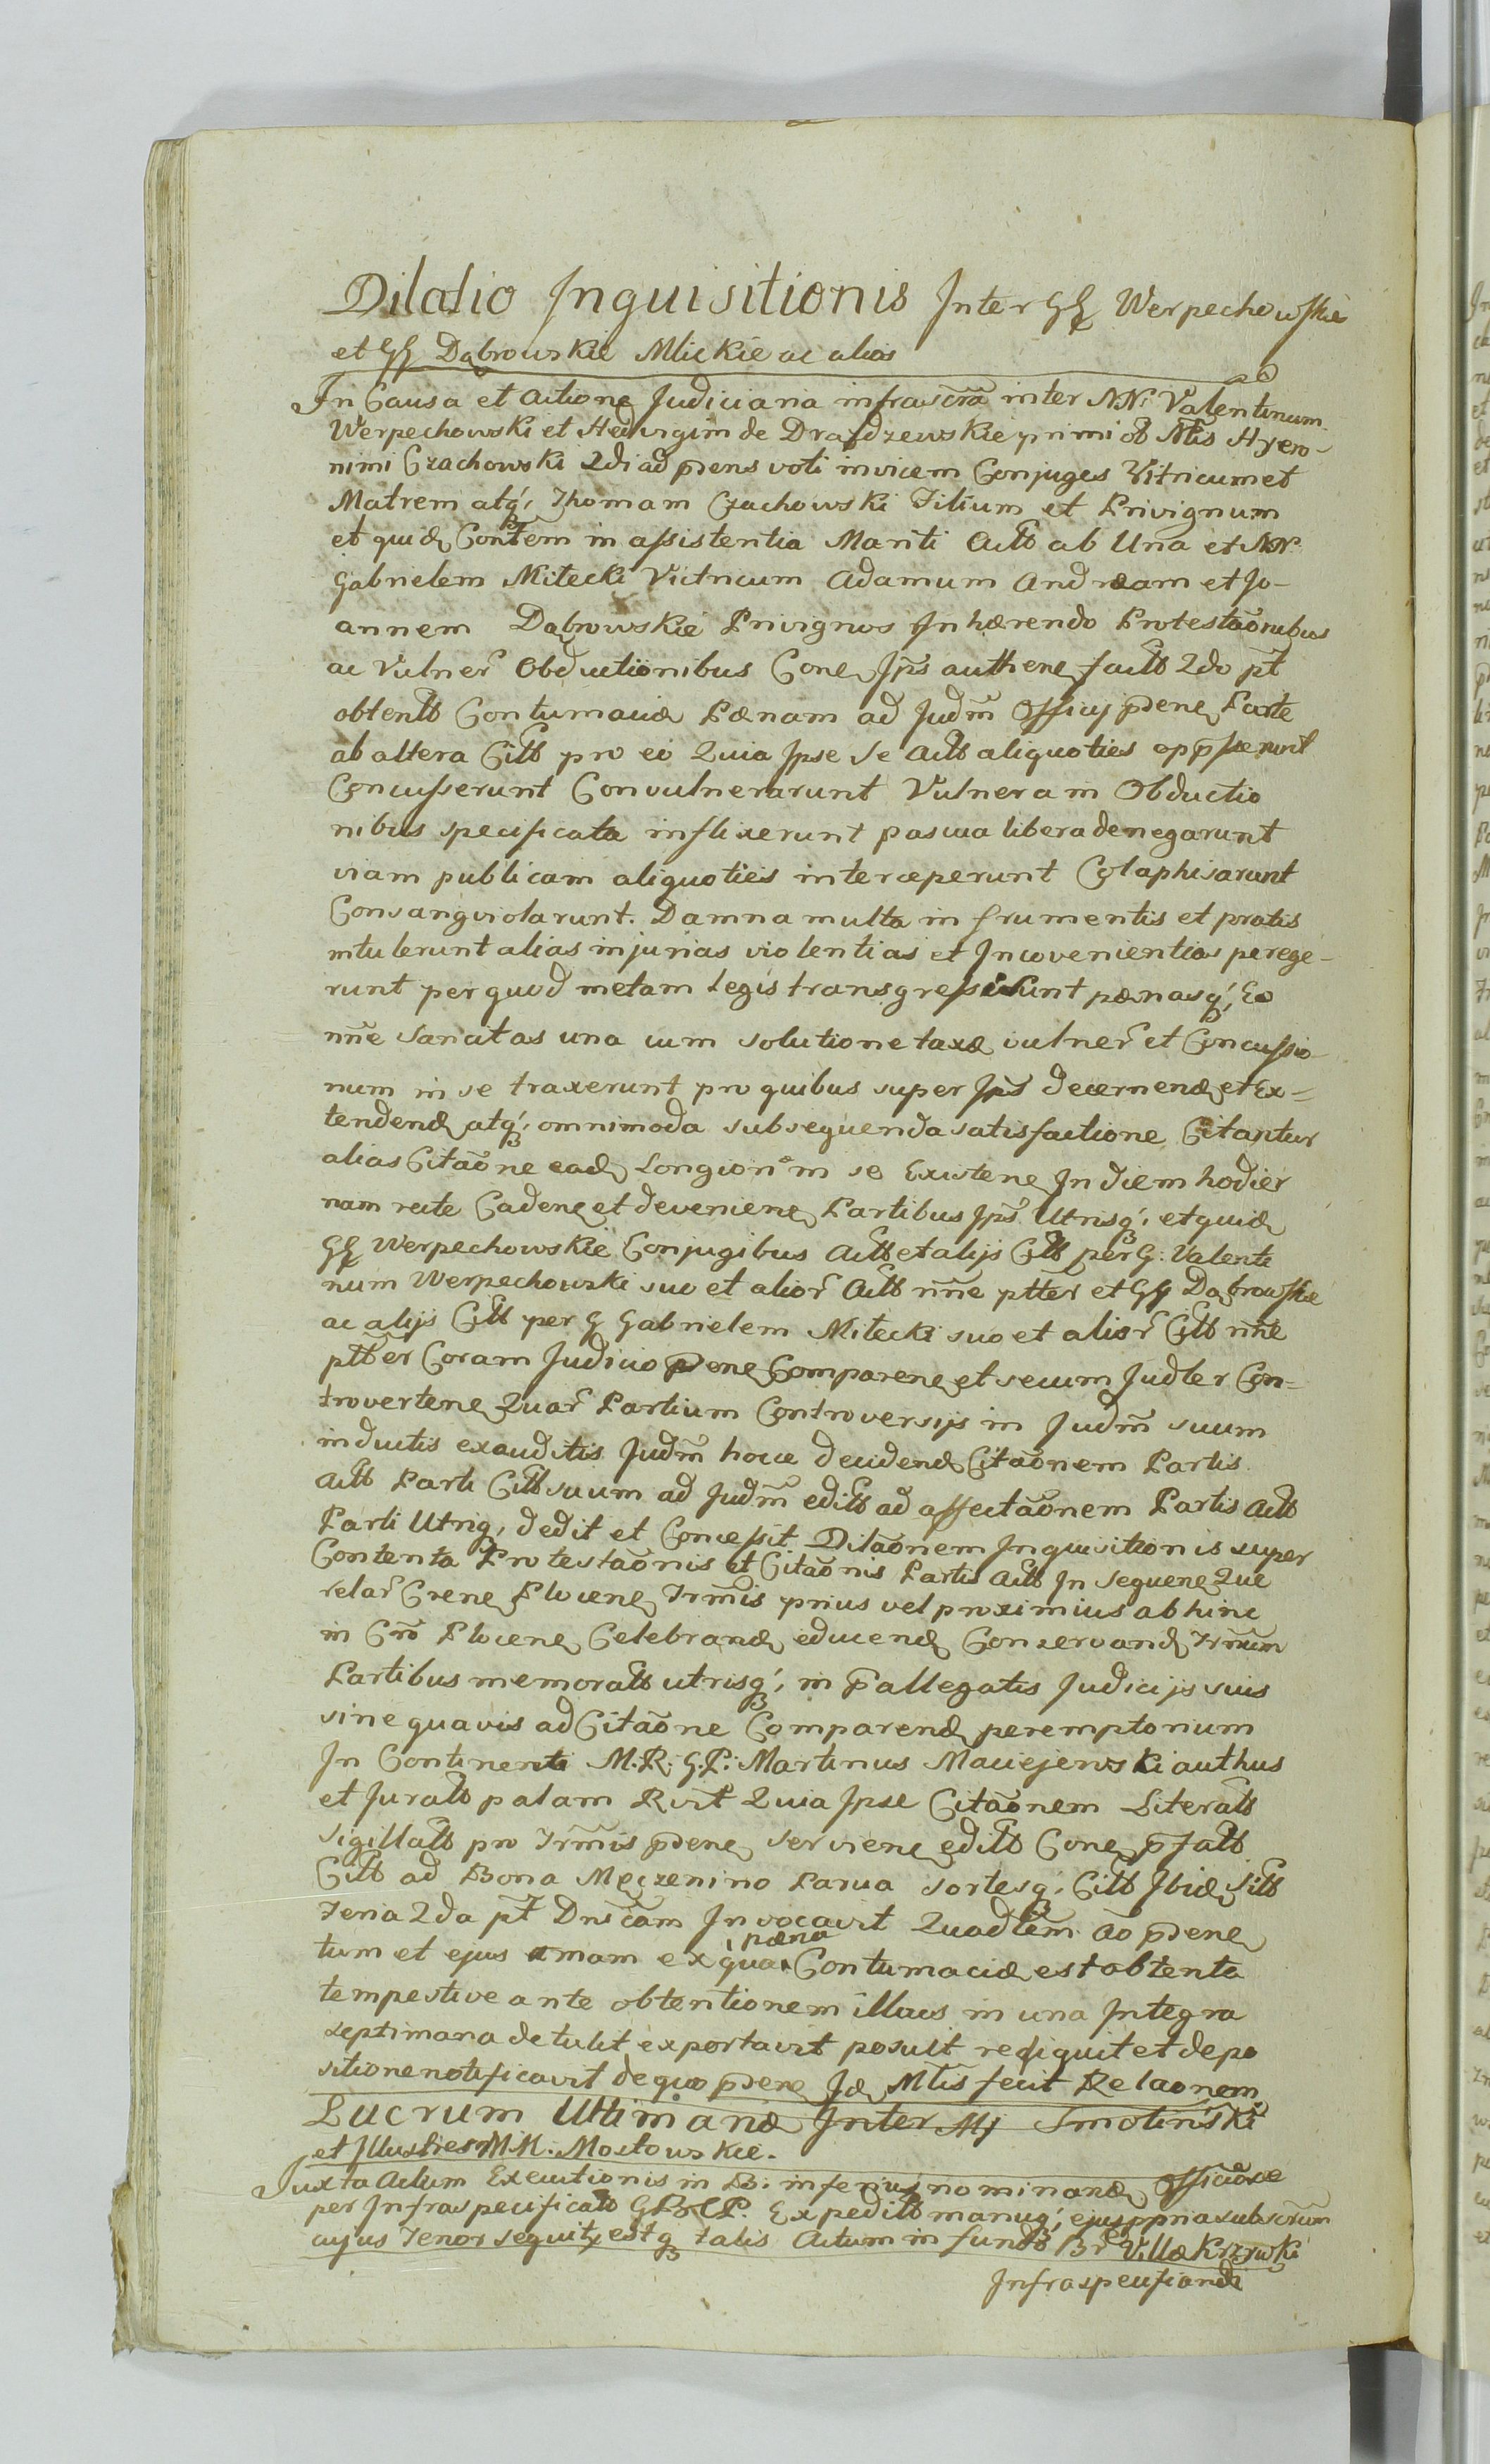 Dilatio Inquisitionis Inter GG Werpechowskie
et GG Dąbrowskie Mlickie ac alios
In Causa et Actione Judiciaria infrascra inter NN. Valentinum
Werpechowski et Hedvigim de Drazdzewskie primi olt Mtis Hyero-
nimi Czachowski 2di ad prens voti invicem Conjuges Vitricum et
Matrem atq, Thomam Czachowski Filium et Privignum
et quid Contem in assistentia Mariti Actt ab Una et NN
Gabrielem Mitecki Victricum Adamum Andream et Jo-
annem Dąbrowskie Privignos Inhærendo Protestaonibus
ac Vulner Obductionibus Cone Jps authene factt 2do pt
obtentt Contumaciæ Pænam ad Judm Officij prene Parte
ab altera Citt pro eo Quia Ipse se Actt aliquoties oppsserunt
Concusserunt Convulnerarunt Vulnera in Obductio
nibus specificata inflixerunt pascua libera denegarunt
viam publicam aliquoties interceperunt Colaphisarunt
Consangviolarunt. Damna multa in frumentis et pratis
intulerunt alias injurias violentias et Incovenientias perege-
runt per quod metam Legis transgressi sunt pænasq, Eo
nne sancitas una cum solutione taxæ vulner et Concussio-
num in se traxerunt pro quibus super Jps decernend et Ex-
tendend atq, omnimoda subsequenda satisfactione Citantur
alias Citaone ead Longiori in se Existene In diem hodier
nam recte Cadene et deveniene Partibus Jps Utrisq, et quid
GG Werpechowskie Conjugibus Actt et alijs Citt per G: Valenti
num Werpechowski suo et alior Actt nne ptter et GG Dąbrowskie
ac alijs Citt per G Gabrielem Mitecki suo et alior Citt nne
ptter Coram Judicio prene Comparene et secum Judler Con-
trovertene Quar Partium Controversijs in Judm suum
inductis exauditis Judm hocce decidend Citaonem Partis
Actt Parti Citt suum ad Judm editt ad affectaonem Partis Actt
Parti Utriq, dedit et Concessit Dilaonem Inquisitionis super
Contenta Protestaonis et Citaonis Partis Actt In sequene Que
relar Crene Plocene Trmis prius vel proximius abhinc
in Cro Plocene Celebrand educend Conservand Trmum
Partibus memoratt utrisq, in pallegatis Judicijs suis
sine quavis adCitaone Comparend peremptorium
In Continenti M. R. G. P: Martinus Maciejewski authus
et Juratt palam Rvit Quia Ipse Citaonem Literatt
Sigillatt pro Trmis prene serviene editt Cone pfatt
Citt ad Bona Męczenino Parva sortesq, Citt Ibid sitt
Feria 2da pt Dnicam Invocavit Quadlem Ao prene
tum et ejus amam ex qua pæna Contumaciæ est obtenta
tempestive ante obtentionem illius in una Integra
septimana detulit exportavit posuit reliquit et depo
sitione notificavit de quo prene Id Mtis fecit Relaonem
Lucrum Ultimand Inter Mj Smoliński
et Illustres MM. Mostowskie.
Juxta Actum Executionis in B. inferius nominand Officiose
per Infraspecificatt Expeditt manuq, ejus ppria subscrum
cujus Tenor sequitr estq talis Actum in fundo Br Villæ Krzywki
Infraspecificandi